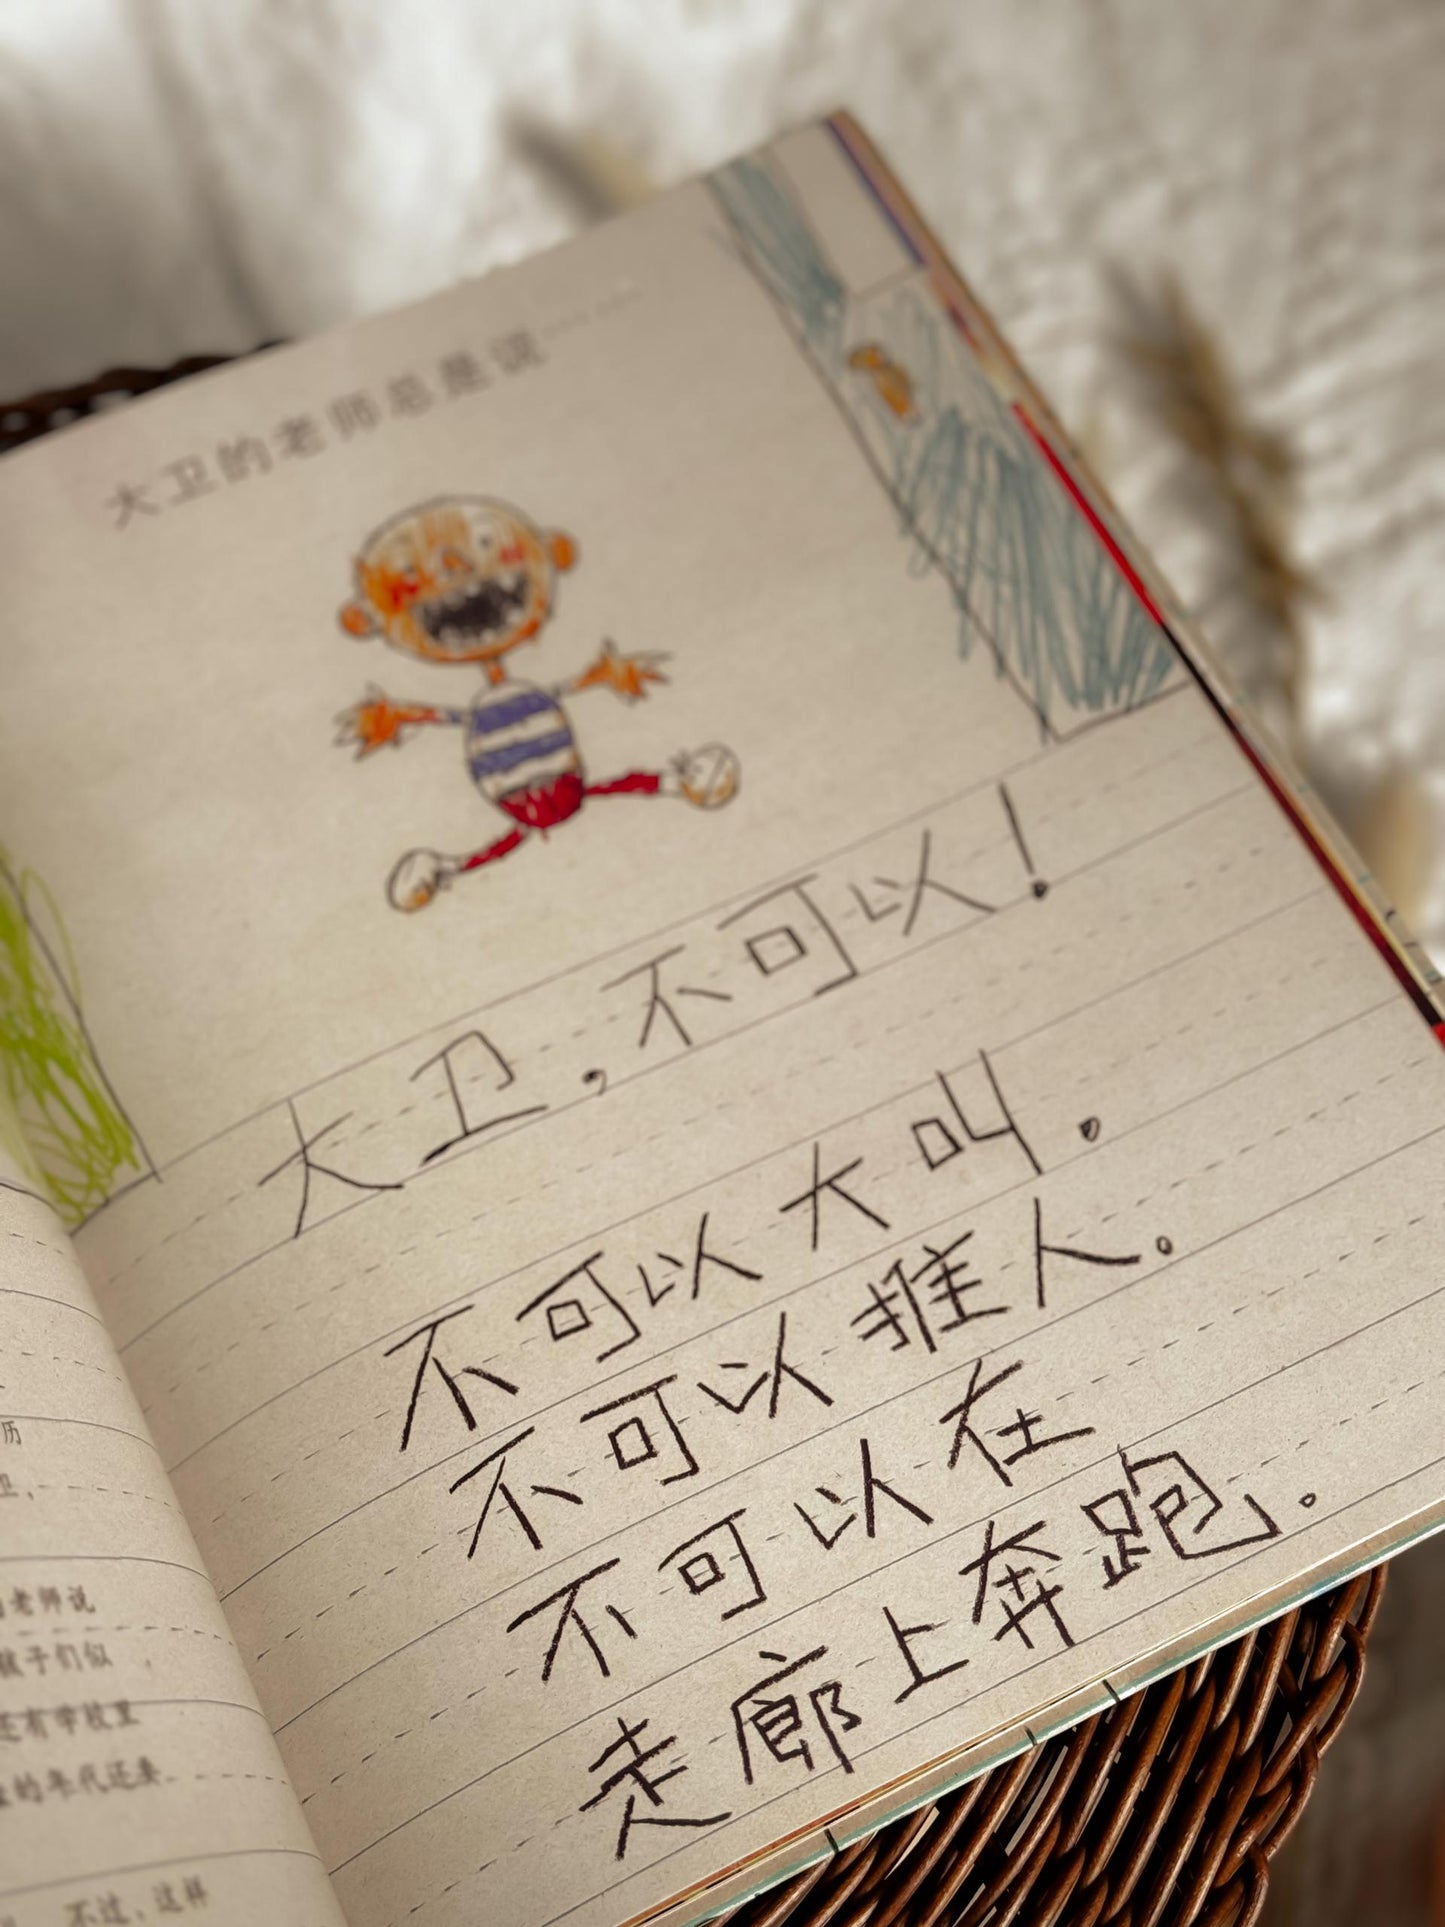 大卫的老师总是说……
大卫，不可以！
不可以大叫。
不可以推人。
不可以在
走廊上奔跑。
历
卫，
老师说
孩子们似
还有学校里
的年代还要
不过，这样